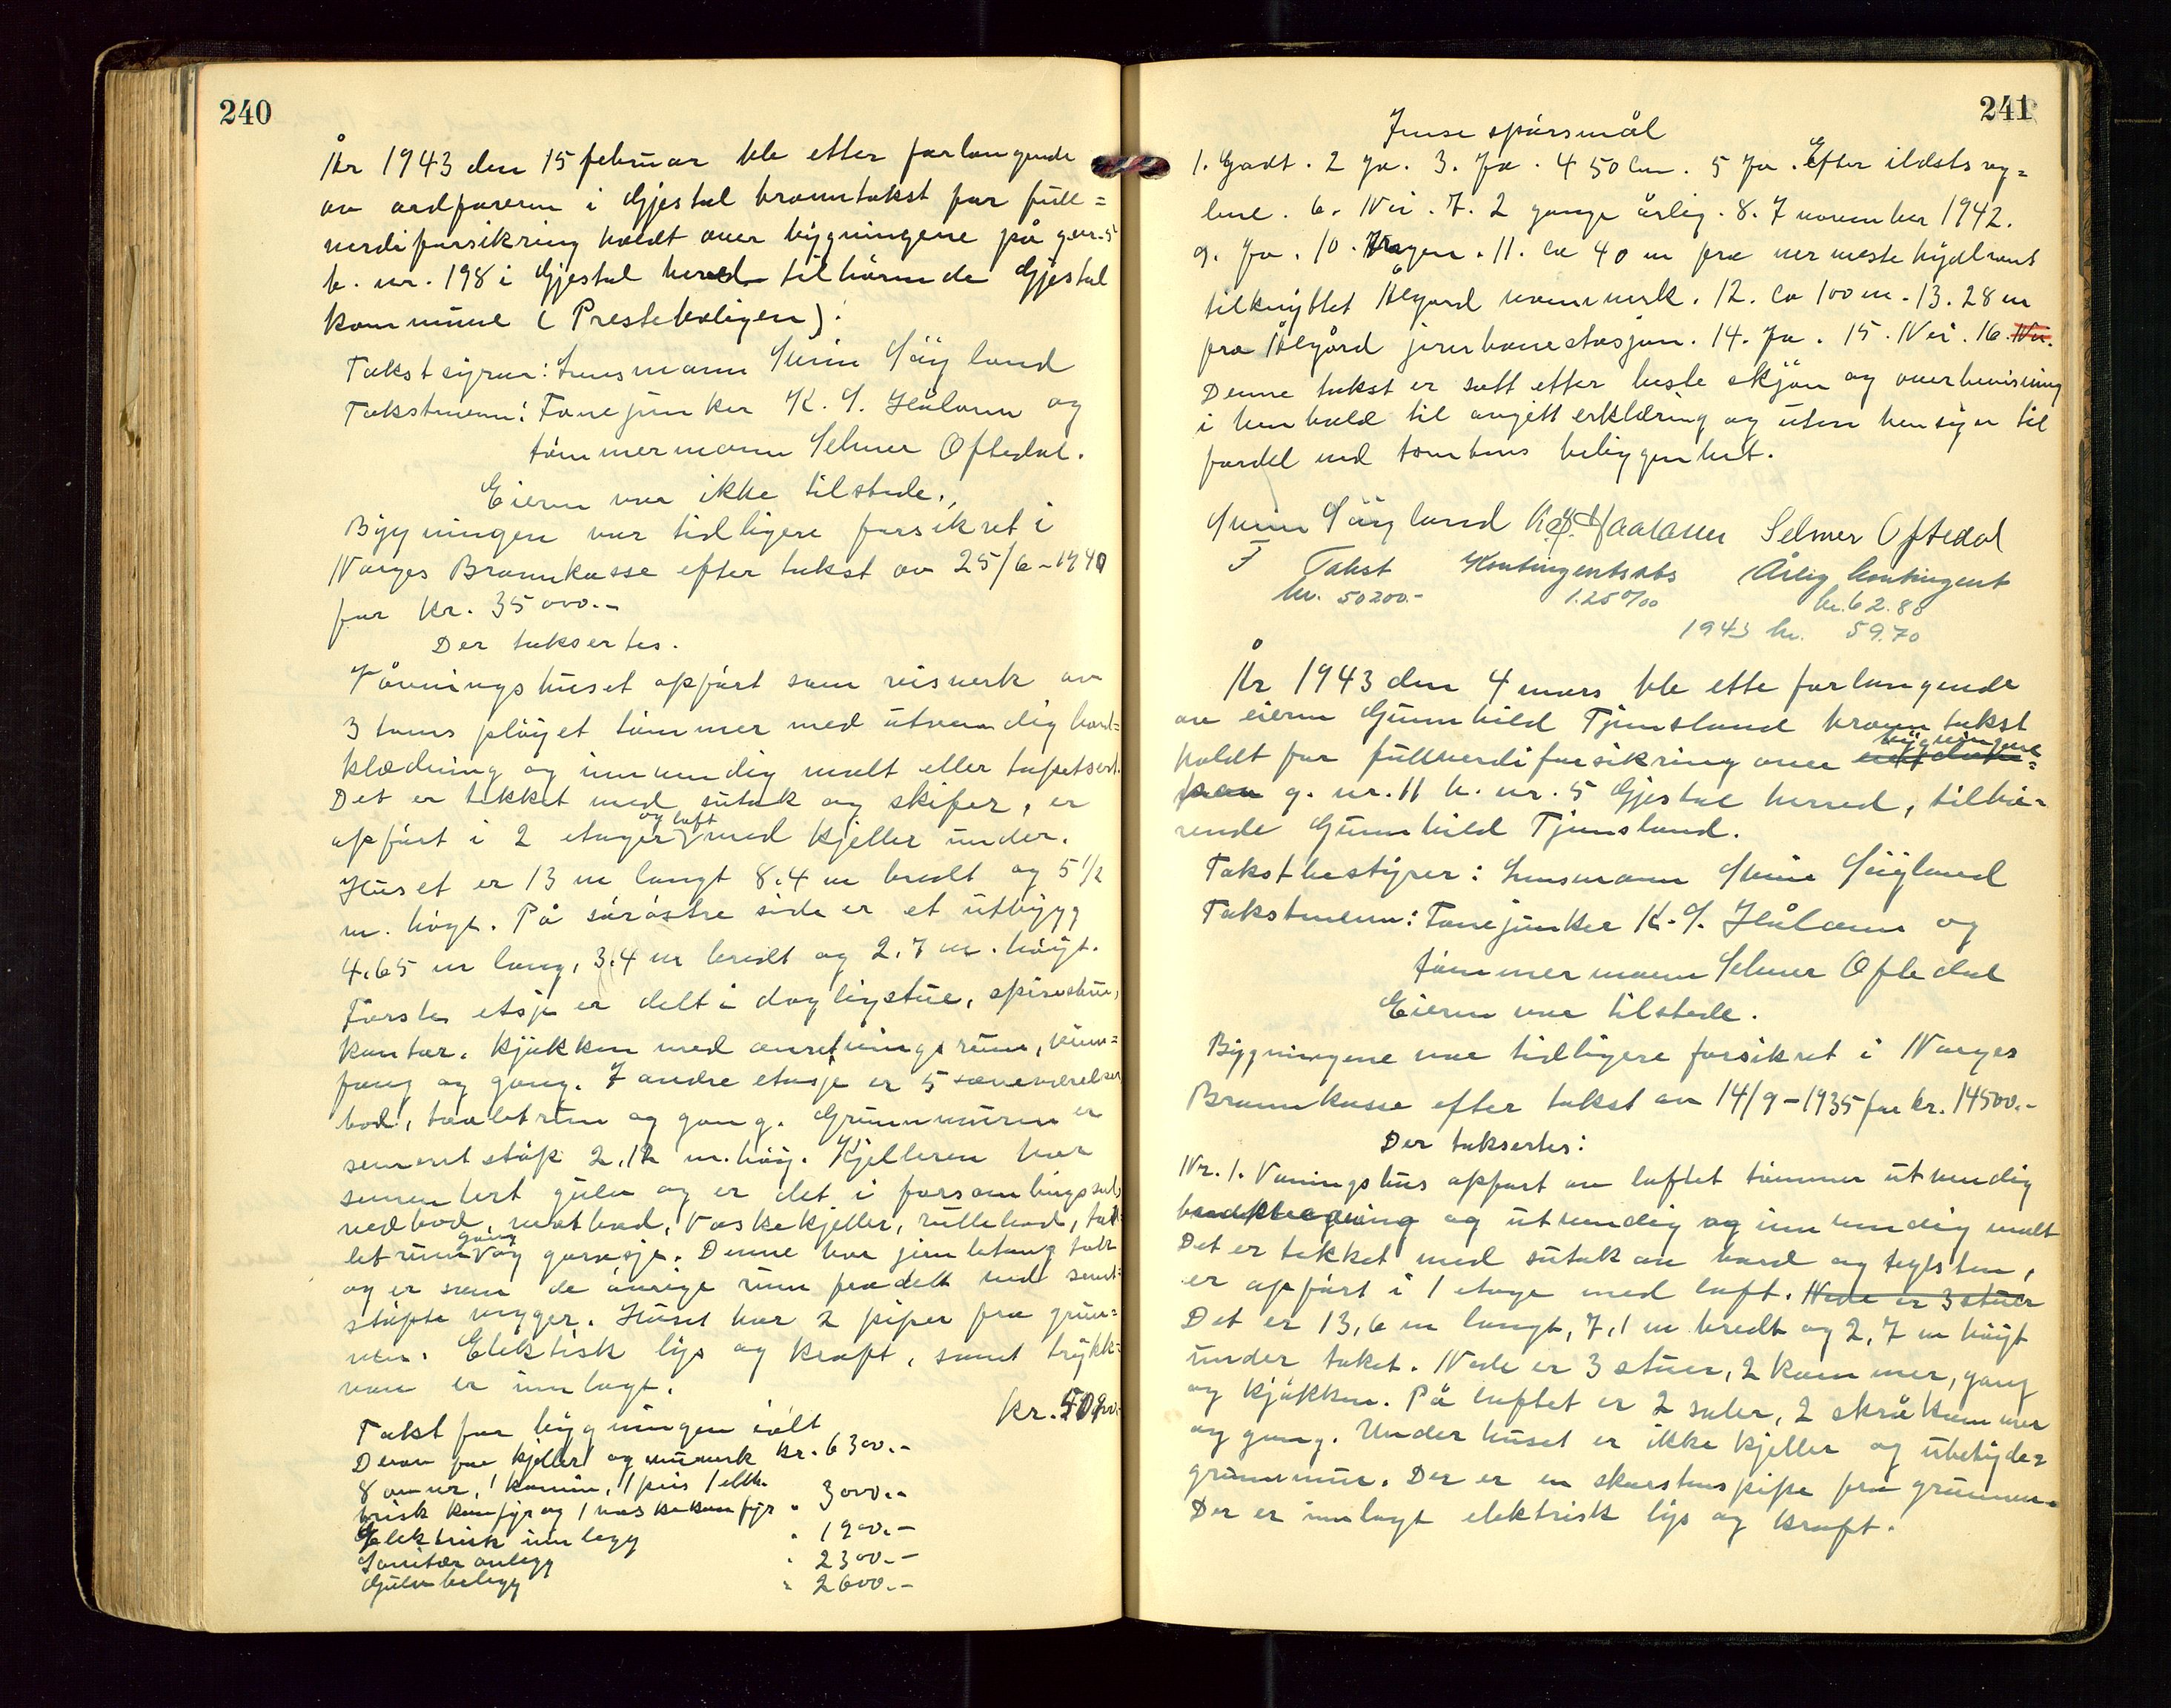 240
År 1943 den 15 februar ble etter forlangende
av ordføreren i Gjestal branntakst for full=
verdiforsikring holdt over bygningene på g.nr. 5
b. nr. 198 i Gjestal herred tilhørende Gjestal
kommune (Presteboligen).
Takstsyrer: Lensmann Svein Søyland
Takstmenn: Fanejunker K. S. Håland og
tømmermann Selmer Oftedal.
Eieren var ikke tilstede.
Bygningen var tidligere forsikret i
Norges Brannkasse efter takst av 25/6-1940
for kr. 35000.-
Der taksertes.
Våningshuset opført som reisverk av
3 toms pløyet tømmer med utvendig bord=
klædning og innvendig malt eller tapetsert.
Det er tekket med sutak og skifer, er
opført i 2 etager og loft med kjeller under.
Huset er 13 m langt 8.4 m bredt og 5 1/2
m. høgt. På sørøstre side er et utbygg
4,65 m lang, 3,4 m bredt og 2,7 m. høigt.
Første etsje er delt i dagligstue, spisestue,
kontor, kjøkken med anretningsrum, vinn=
fang og gang. I andre etasje er 5 soveværelser
bod, toaletrum og gang. Grunnmuren er
sement støp 2,12 m. høy. Kjelleren har
sementert gulv og er delt i forsamlingssal,
vedbod, matbod, vaskekjeller, rullebod, toa=
letrum gang og garasje. Denne har jernbetong tak
og er som de øvrige rum fradelt med sement=
støpte vegger. Huset har 2 piper fra grun=
nen. Elektisk lys og kraft, samt trykk=
vann er innlagt.
Takst for bygningen ialt kr. 50200.-
Derav for kjeller og murverk kr. 6300.-
8 ovner, 1 kamin, 1 peis 1 elek=
trisk komfyr og 1 vaskekomfyr " 3000.-
Elektrisk innlegg " 1900.-
Sanitær anlegg " 2300.-
Gulvbelegg " 2600.-
241
Jense spørsmål
1. Godt. 2 Ja. 3. Ja. 4 50 cm. 5 Ja. Efter ildsts reg=
lene. 6. Nei. 7. 2 gange årlig. 8. 7 november 1942.
9. Ja. 10. Ingen. 11. ca 40 m fra nermeste hydrant
tilknyttet Ålgård vannverk. 12. Ca 100 m. 13. 28 m
fra Ålgård jernbanestasjon. 14. Ja. 15. Nei. 16. Nei.
Denne takst er satt etter beste skjøn og overbevisning
i henhold til avgitt erklæring og uten hensyn til
fordel ved tomtens beliggenhet.
Svein Søyland K. S. Haaland Selmer Oftedal
F Takst Kontingentsats Årlig kontingent
kr. 50200.- 1.25 0/00 kr. 62.88
1943 kr. 59.70
År 1943 den 4 mars ble ette forlangende
av eieren Gunnhild Tjensland branntakst
holdt for fullverdiforsikring over bygningene
g. nr. 11 b. nr. 5 Gjestal herred, tilhø=
rende Gunnhild Tjensland.
Takstbestyrer: Lensmann Svein Søyland
Takstmenn: Fanejunker K. S. Håland og
tømmermann Selmer Oftedal
Eieren var tilstede.
Bygningene var tidligere forsikret i Norges
Brannkasse efter takst av 14/9-1935 for kr. 14500.-
Der taksertes:
Nr. 1. Vaningshus oppført av loftet tømmer utvendig
bordklædning og utvendig og innvendig malt
Det er tekket med sutak av bord og teglsten,
er opført i 1 etage med loft. Nede er 3 stuer
Det er 13,6 m langt, 7,1 m bredt og 2,7 m høigt
under taket. Nede er 3 stuer, 2 kammer, gang
og kjøkken. På loftet er 2 saler, 2 skråkammer
og gang. Under huset er ikke kjeller og ubetyde=
grunnmur. Der er en skorstenspipe fra grunnen.
Der er innlagt elektrisk lys og kraft.